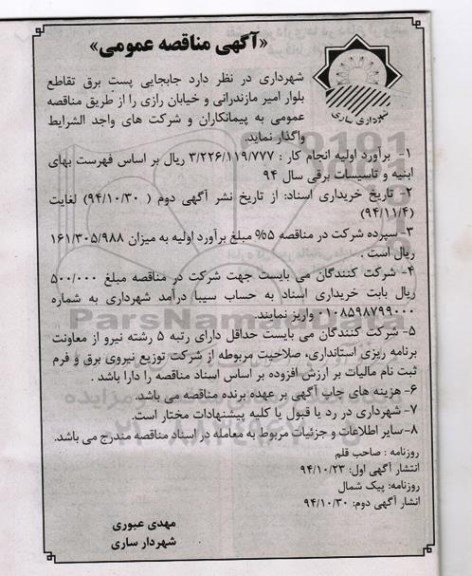 «آگهی مناقصه عمومی»
شهرداری ساری
شهرداری در نظر دارد جابجایی پست برق تقاطع
بلوار امیر مازندرانی و خیابان رازی را از طریق مناقصه
عمومی به پیمانکاران و شرکت های واجد الشرایط
واگذار نماید.
۱- برآورد اولیه انجام کار : ۳/۲۲۶/۱۱۹/۷۷۷ ریال بر اساس فهرست بهای
ابنیه و تاسیسات برقی سال ۹۴
۲- تاریخ خریداری اسناد: از تاریخ نشر آگهی دوم ( ۹۴/۱۰/۳۰) لغایت
(۹۴/۱۱/۴)
۳- سپرده شرکت در مناقصه ۵% مبلغ برآورد اولیه به میزان ۱۶۱/۳۰۵/۹۸۸
ریال است .
۴- شرکت کنندگان می بایست جهت شرکت در مناقصه مبلغ ۵۰۰/۰۰۰
ریال بابت خریداری اسناد به حساب سیبا درآمد شهرداری به شماره
۰۱۰۸۵۹۸۷۹۹۰۰۰ واریز نمایند.
۵- شرکت کنندگان می بایست حداقل دارای رتبه ۵ رشته نیرو از معاونت
برنامه ریزی استانداری، صلاحیت مربوطه از شرکت توزیع نیروی برق و فرم
ثبت نام مالیات بر ارزش افزوده بر اساس اسناد مناقصه را دارا باشد .
۶- هزینه های چاپ آگهی بر عهده برنده مناقصه می باشد.
۷- شهرداری در رد یا قبول یا کلیه پیشنهادات مختار است.
۸-سایر اطلاعات و جزئیات مربوط به معامله در اسناد مناقصه مندرج می باشد.
روزنامه : صاحب قلم
انتشار آگهی اول: ۹۴/۱۰/۲۳
روزنامه: پیک شمال
انشار آگهی دوم: ۹۴/۱۰/۳۰
مهدی عبوری
شهردار ساری